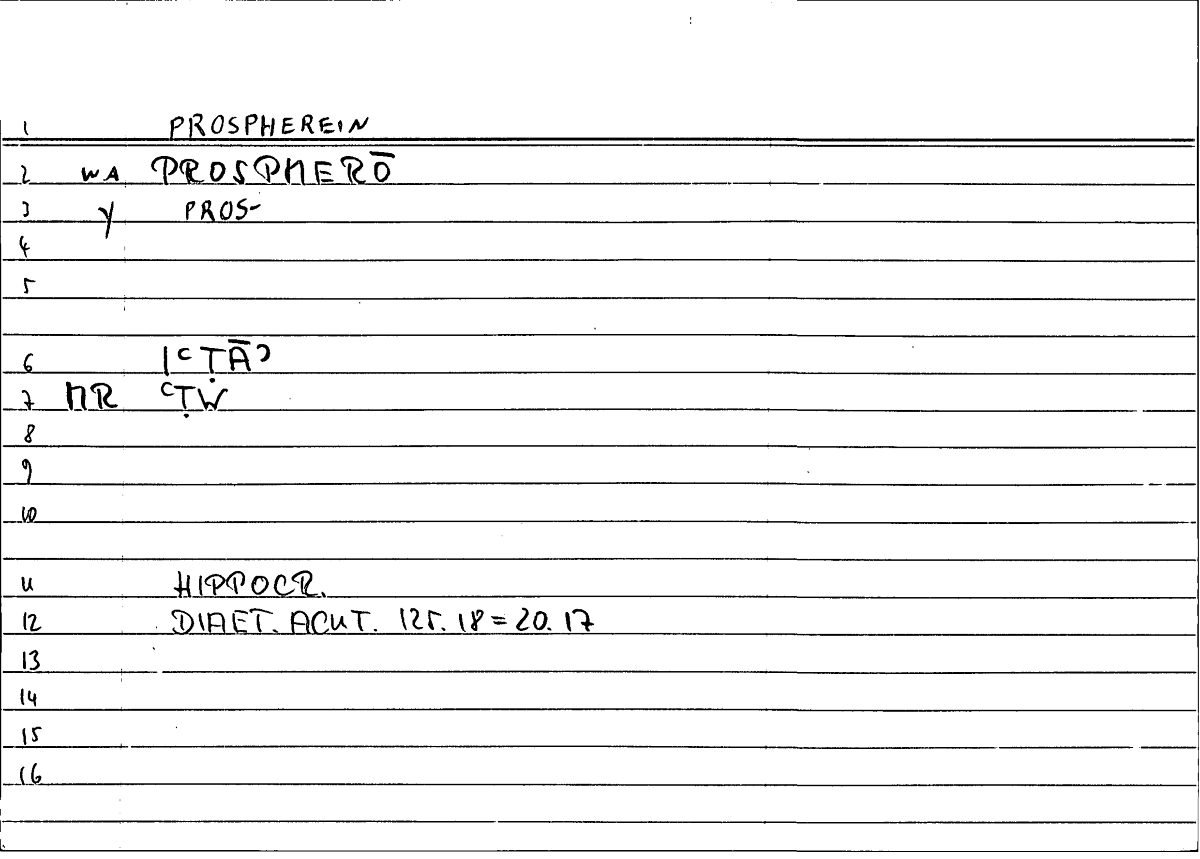 1 PROSPHEREIN
2 WA PROSPHERŌ
3 γ PROS-
4
5
6 IʿṬĀʾ
7 HR ʿṬW
8
9
10
11 HIPPOCR.
12 DIAET. ACUT. 125.18=20.17
13
14
15
16